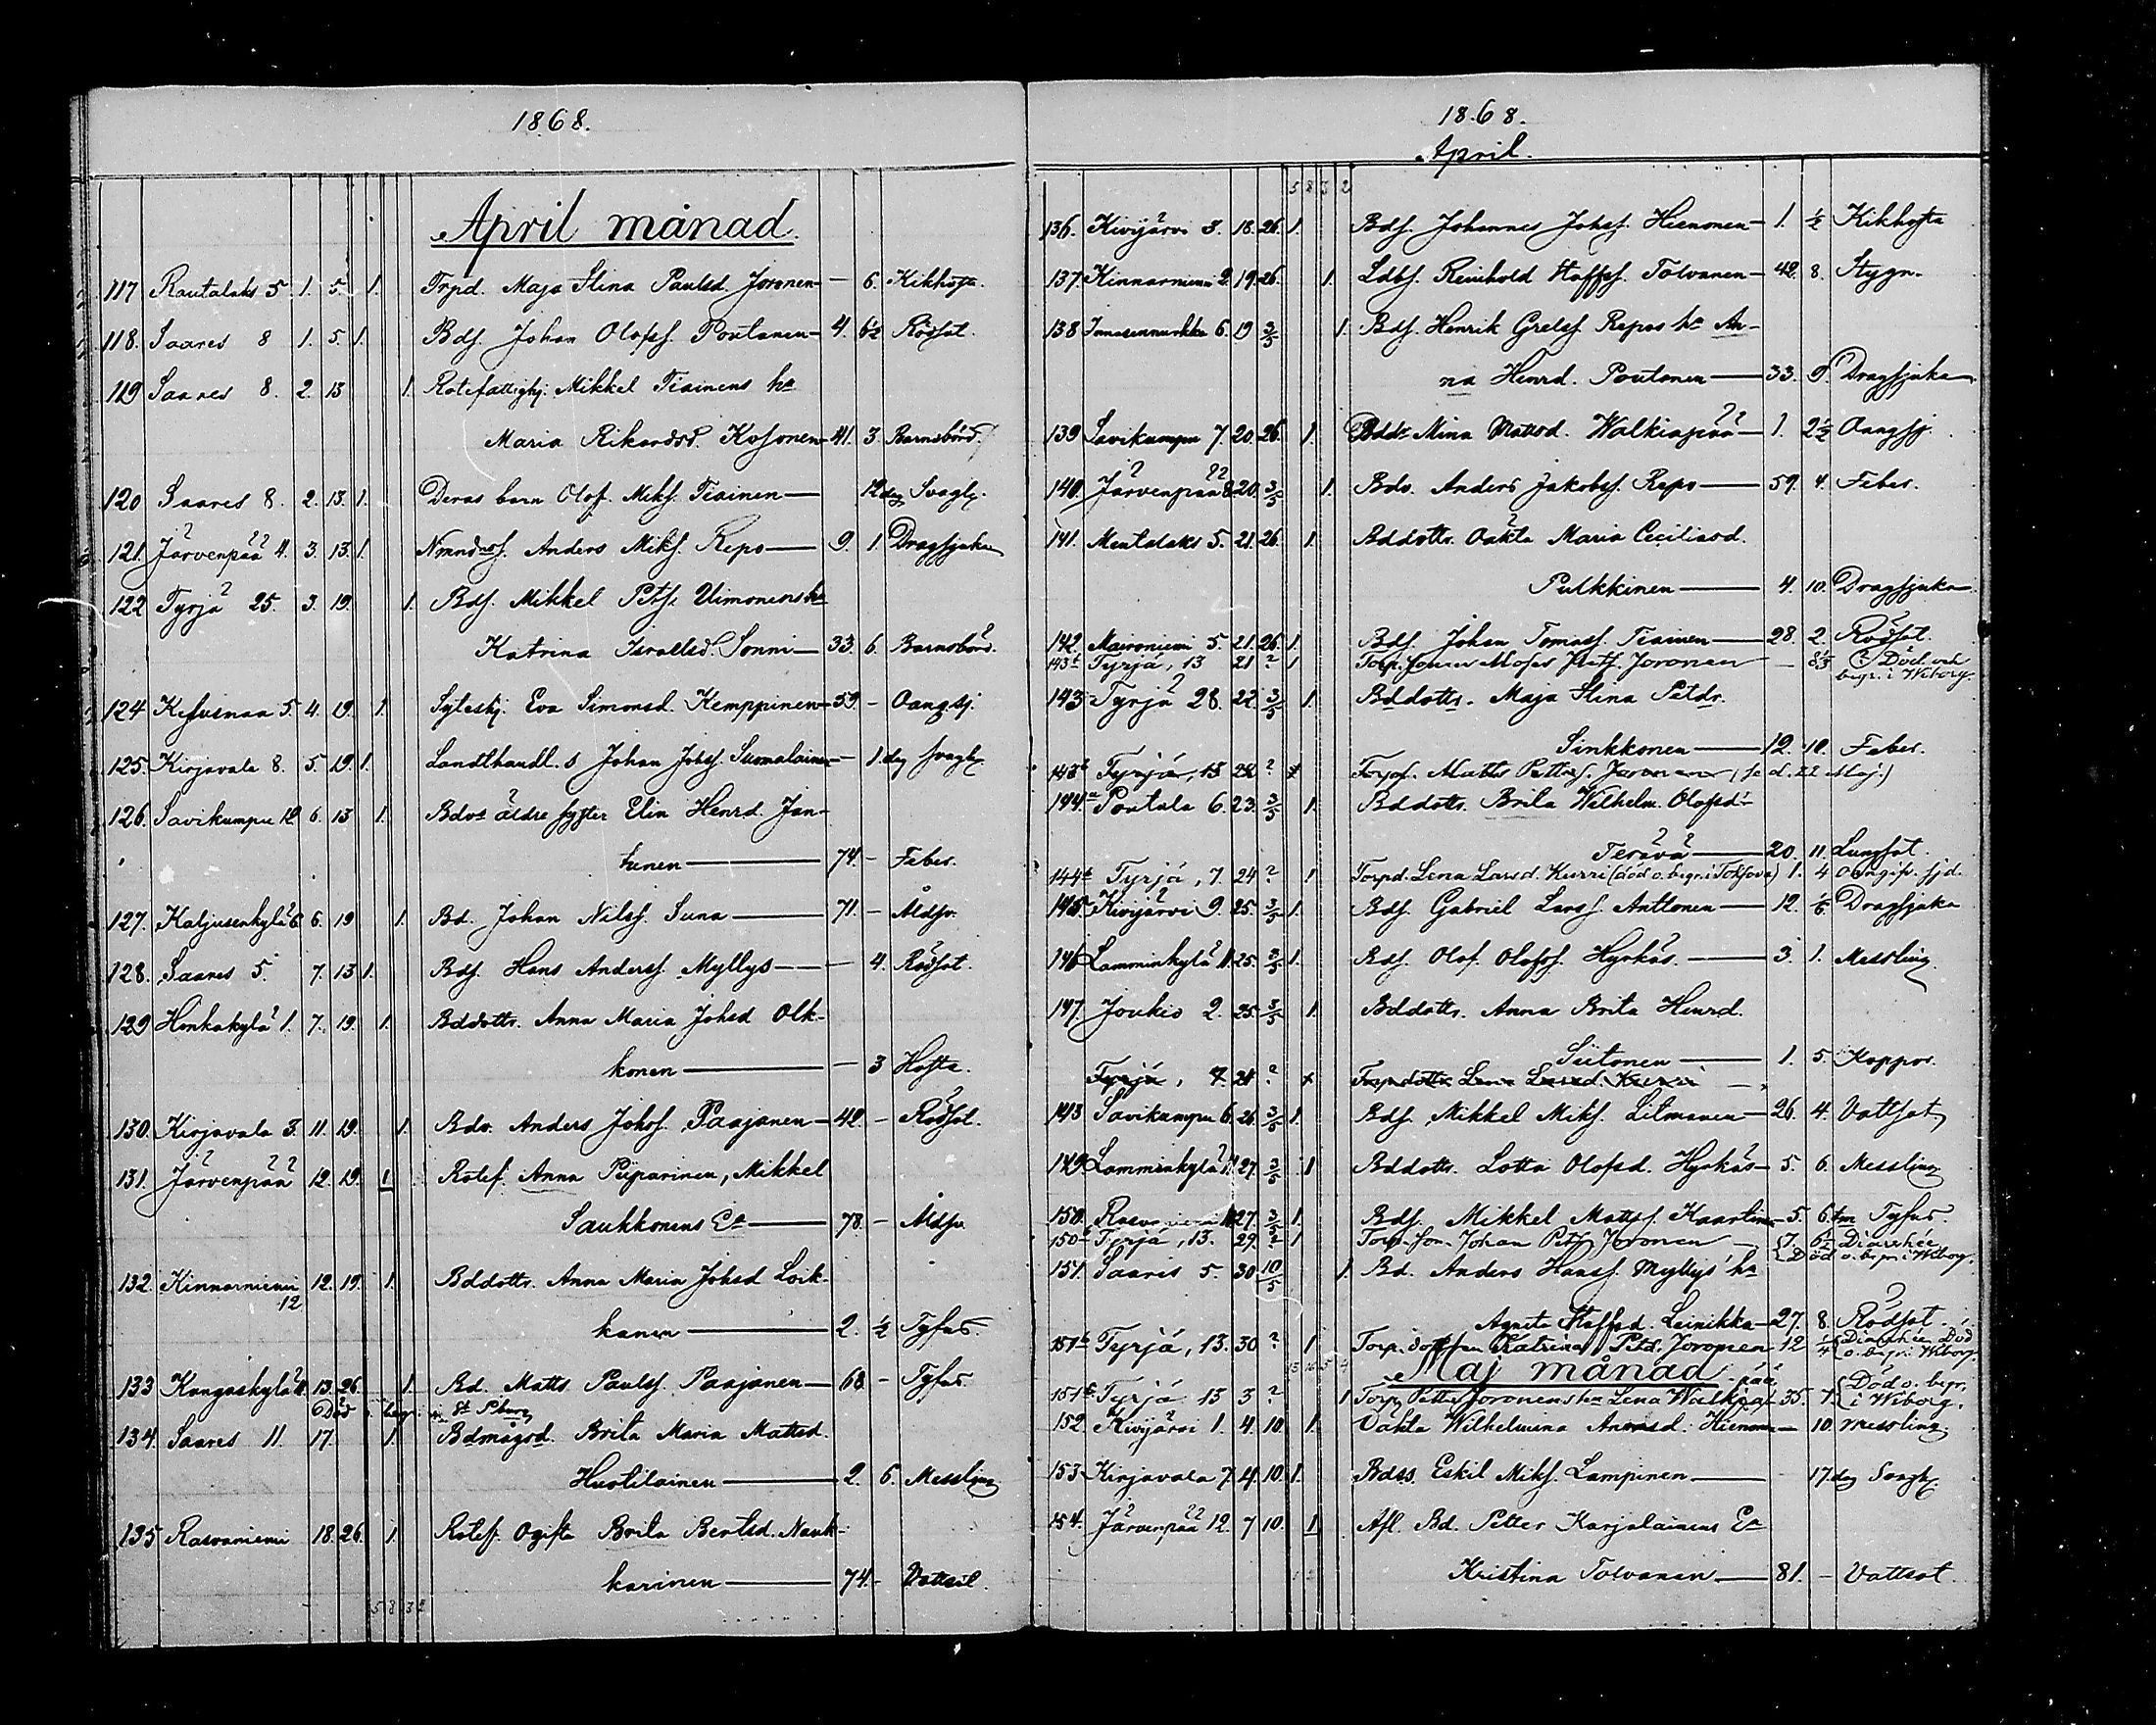 1868.
April månad.
117 Rautalaks 5. 1. 5. 1. Trpd. Maja Stina Paulsd. Joronen — 6. Kikhosta.
118. Saares 8 1. 5. 1. Bds. Johan Olofss. Poutanen — 4. 6½ Rödsot.
119 Saares 8. 2. 13 1. Rotefattighj. Mikkel Tiainens ha
Maria Rikardsd. Kosonen — 41. 3. Barnsbörd.
120 Saares 8. 2. 13. 1. Deras barn Olof Miks. Tiainen — 12 dag Svagh.
121. Järvenpää 4. 3. 13. 1. Nmndns. Anders Miks. Repo — 9. 1. Dragsjuka
122 Tyrjä 25. 3. 19. 1. Bds. Mikkel Petss. Uimonens ha
Katrina Israelsd. Sonni — 33. 6. Barnsbörd.
124 Kesusmaa 5 4. 19. 1. Syteshj. Eva Simonsd. Kemppinen — 59. - Oangsj.
125. Kirjavala 8. 5. 19. 1. Landthandl. s Johan Johss. Suomalainen — 1. dag svagh.
126. Savikumpu 12 6. 13 1. Bdvs äldre syster Elin Henrd. Jan-
tunen — 74. - Feber.
127. Kaljusenkylä 6. 6. 19 1. Bd. Johan Nilss. Suna — 71. - Åldsv.
128. Saares 5. 7. 13 1. Bds. Hans Anderss. Myllys — 4. Rödsot.
129 Honkakylä 1. 7. 19. 1. Bddottr. Anna Maria Johsd Olk-
konen — 3 Hosta.
130. Kirjavala 3. 11. 19. 1. Bdv. Anders Johss. Paajanen — 42. - Rödsot.
131. Järvenpää 12. 19. 1 Rotef. Anna Piiparinen, Mikkel
Saukkonens Ea — 78. - Åldsv.
132. Kinnarniemi 12. 19. 1. Bddottr. Anna Maria Johsd Loik-
12
kanen — 2. ½ Tyfus.
133 Kangaskylä 11. 13. 26. 1. Bd. Matts Paulss. Paajanen — 68 - Tyfus.
Död o. begr. i St. Pburg
134. Saares 11. 17. 1. Bdmågsd. Brita Maria Mattsd.
Huotilainen — 2. 6. Messling
135 Rasvaniemi 18. 26. 1. Rotef. Ogifta Brita Bertsd. Nauk-
karinen — 74. - Vattsot.
5 8 3 2
1868.
April.
5 8 3 2
136. Kivijärvi 3. 18. 26. 1. Bds. Johannes Johss. Hienonen — 1. ½ Kikhosta
137. Kinnarniemi 2. 19. 26. 1. Ldbs. Reinhold Staffss. Tolvanen — 42. 8. Stygn.
138 Innasennurkka 6. 19 3/5 1. Bds. Henrik Grelss. Repos ha An-
na Henrd. Poutanen — 33. 9. Dragsjuka
139 Savikumpu 7. 20. 26. 1. Bddt. Mina Mattsd. Walkiapää — 1. 2½ Oangsj.
140. Järvenpää 8. 20. 3/5 1. Bdv. Anders Jakobss. Repo — 59. 4. Feber.
141. Mentalaks 5. 21. 26. 1. Bddottr. Oäkta Maria Ceciliasd.
Pulkkinen — 4. 10. Dragsjuka
142. Maironiemi 5. 21. 26. 1. Bds. Johan Tomass. Tiainen — 28. 2. Rödsot.
143b Tyrjä, 13 21 ? 1 Torp. sonen Moses Petss. Joronen — 8⅓ ? Död och
begr. i Wiborg.
143 Tyrjä 28. 22. 3/5 1. Bddottr. Maja Stina Petdr.
Sinkkonen — 12. 10. Feber.
143b Tyrjä, 13 22 ? x Torps. Matts Petters. Joronen (se d. 22 Maj.)
144.a Poutala 6. 23. 3/5 1. Bddottr. Brita Wilhelm. Olofsdr
Terävä — 20. 11. Lungsot.
144b Tyrjä, 7. 24 ? 1 Torpd. Lena Larsd. Kurri (död o. begr. i Toksova) 1. ¼ oangifv. sjd.
145. Kivijärvi 9. 25. 3/5 1. Bds. Gabriel Larss. Anttonen — 12. ⅙ Dragsjuka
146 Lamminkylä 11. 25. 3/5 1. Bds. Olof Olofss. Hyrkäs. — 3. 1. Messling
147. Joukio 2. 25. 3/5 1. Bddottr. Anna Brita Henrd.
Siitonen — 1. 5. Koppor.
Tyrjä, 7. 24 ? x Torpdottr. Lena Larsd. Kurri —
148 Savikumpu 6. 26. 3/5 1. Bds. Mikkel Miks. Litmanen — 26. 4. Vattsot
149 Lamminkylä 11 27. 3/5 1 Bddottr. Lotta Olofsd. Hyrkäs — 5. 6. Messling
150. Rasvaniemi 11 27. 3/5 1. Bds. Mikkel Mattss. Kaartinen — 5. 6. Tyfus.
150b Tyrjä, 13. 29. ? 1 Torp. son. Johan Petss. Joronen — 7. 6½ Diarrhée
Död o. begr. i Wiborg.
151. Saaris 5. 30 10/5 1. Bd. Anders Hanss. Myllys' ha
Agneta Staffsd. Leinikka — 27. 8. Rödsot.
151b Tyrjä, 13. 30 ? 1 Torp. dottren Katrina Petd. Joronen 12 ¼ Diarrhée, Död
o. begr. i Wiborg.
15 16 5 4
Maj månad.
151b Tyrjä 13 3 ? 1 Torp. Petter Joronens ha Lena Walkiapää 35. - Död o. begr.
i Wiborg.
152. Kivijärvi 1. 4. 10. 1. Oäkta Wilhelmina Annasd. Hienonen — 10. Messling
153 Kirjavala 7. 4. 10. 1. Bdss. Eskil Miks. Lampinen — 17. dag Svagh.
154. Järvenpää 12. 7 10. 1 Afl. Bd. Petter Karjalainens Ea
Kristina Tolvanen — 81. - Vattsot.